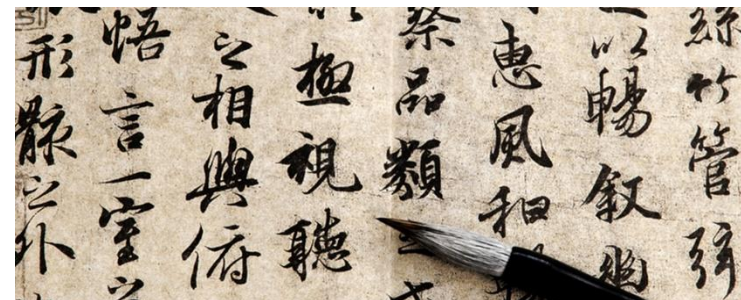 絲竹管弦
以暢叙幽
惠風和
察品類之盛
以極視聽
之相與俯
悟言一室之
形骸之外